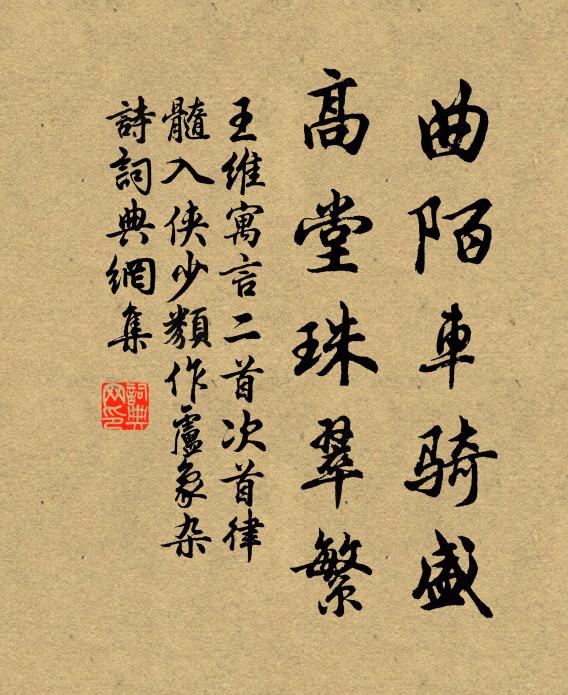 曲陌車騎盛
高堂珠翠繁
王維寓言二首次首律
髓入俠少類作盧象杂
詩詞典網集
詞典网印